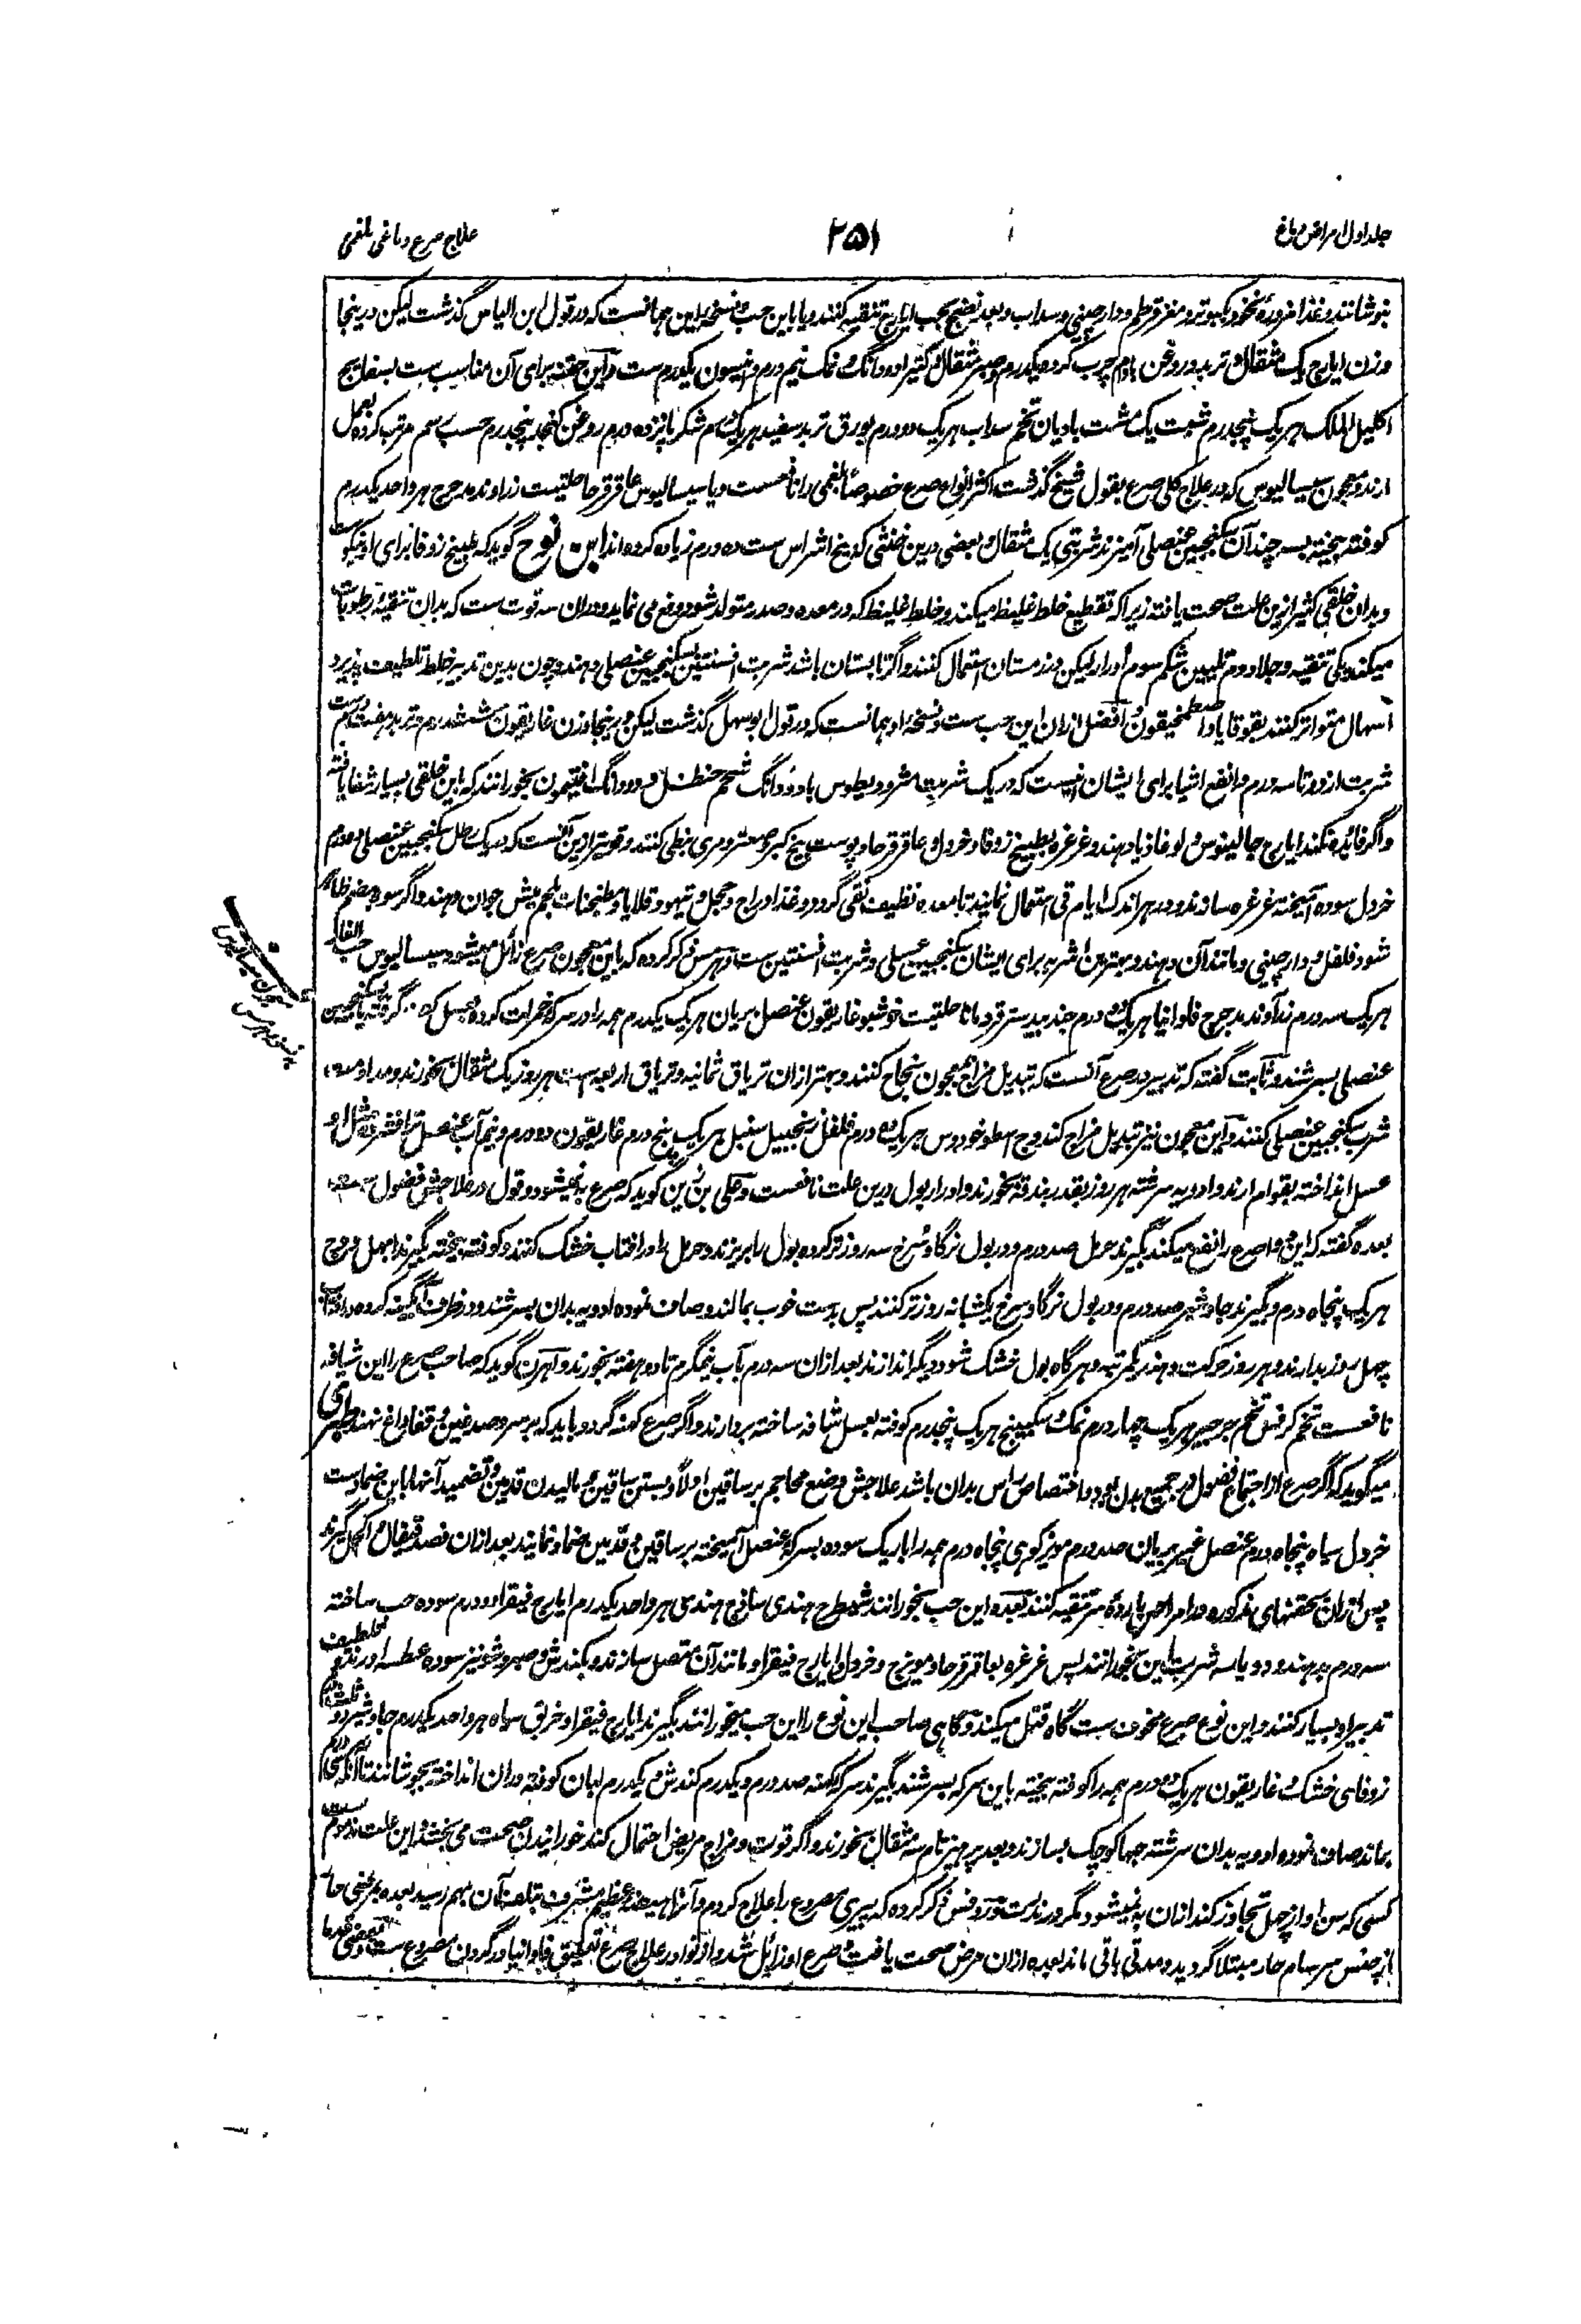 جلد اول امراض دماغ
۲۵۱
علاج صرع دماغی بلغمی
بنوشانند و غذا مزوره نخود و کبوتر و مغز قرطم و دارچینی و سداب و بعد نضج بحب ایارج تنقیه کنند و یا باین حب و نسخه این همانست که در قول ابن الیاس گذشت لیکن درینجا
وزن ایارج یک مثقال و تربد و روغن بادام چرب کرده یکدرم و صبر مثقال و کتیرا دو دانگ و نمک نیم درم و انیسون یکدرم ست و این حقنه برای آن مناسب ست بسفایج
اکلیل الملک هر یک پنجدرم شبت یک مشت بادیان تخم سداب هر یک دو درم بورق تربد سفید هر یک درم شکر پانزده درم روغن کنجد پنجدرم حسب رسم مرتب کرده بعمل
آرند و معجون سیسالیوس که در علاج کلی صرع بقول شیخ گذشت اکثر انواع صرع خصوصاً بلغمی را نافعست و یا سیسالیوس عاقرقرحا حلتیت زراوند مدحرج هر واحد یکدرم
کوفته بیخته بسه چند آن سکنجبین عنصلی آمیزند شربتی یک مثقال و بعضی درین خنثی که بیخ اشراس ست ده درم زیاده کرده اند ابن نوح گوید که طبیخ زوفا برای او نیکوست
و بدان خلقی کثیر ازین علت صحت یافته زیرا که تقطیع خلط غلیظ میکند و خلط غلیظ که در معده و صدر متولد شود دفع می نماید و دران سه قوت ست که بدان تنقیه رطوبات
میکند یکی تنقیه و جلا دوم تلیین شکم سوم ادرار لیکن در زمستان استعمال کنند و اگر تابستان باشد شربت افسنتین و سکنجبین عنصلی دهند و چون بدین تدبیر خلط تلطیف پذیرد
اسهال متواتر کنند بقوقایا و اصطمخیقون و افضل ازان این حب ست و نسخه او همانست که در قول ابو سهل گذشت لیکن درینجا وزن غاریقون ششدرم و تربد هفت درم ست
شربت از دو تا سه درم و انفع اشیا برای ایشان اینست که در یک شربت مثرودیطوس با دو دانگ شحم حنظل و دو دانگ افتیمون بخورانند که ازین خلقی بسیار شفا یافته
و اگر فائده نکند ایارج جالینوس و لوغاذیا دهند و غرغره بطبیخ زوفا و خردل و عاقرقرحا و پوست بیخ کبر و صعتر و مری نبطی کنند و قویتر ازین آنست که در یک رطل سکنجبین عنصلی ده درم
خردل سوده آمیخته غرغره سازند و در هر اندک ایام قی استعمال نمایند تا معده نظیف نقی گردد و غذا دراج و حجل و تیهو و قلایا و مطنجنات بلحم میش جوان دهند و اگر سوء هضم ظاهر
شود فلفل و دارچینی و مانند آن دهند و بهترین اشربه برای ایشان سکنجبین عسلی و شربت افسنتین ست و هرمس ذکر کرده که باین معجون صرع زائل میشود سیسالیوس حب الغار
هر یک سه درم زراوند مدحرج فاوانیا هر یک دو درم جندبیدستر قردمانا حلتیت خوشبو غاریقون عنصل بریان هر یک یکدرم همه را در سرکه خمرات کرده بعسل کف گرفته یا سکنجبین
عنصلی بسرشند و ثابت گفته که تدبیر در صرع آنست که تبدیل مزاج بمعجون سنجاح کنند و بهتر ازان تریاق ثمانیه و تریاق اربعه ست هر روز یک مثقال بخورند و مداومت
شرب سکنجبین عنصلی کنند و این معجون نیز تبدیل مزاج کند وج اسطوخودوس هر یک ده درم فلفل زنجبیل سنبل هر یک پنج درم غاریقون دو درم و نیم آب عنصل تر افشرده مثل او
عسل انداخته بقوام آرند و ادویه سرشته هر روز بقدر بندقه بخورند و ادرار بول درین علت نافعست و علی بن ربن گوید که صرع به نمیشود و قول در علاجش فضول ست
بعده گفته که این دوا صرع را نفع میکند بگیرند حرمل صد درم و در بول نرگاو سرخ سه روز تر کرده بول را بریزند و حرمل را در آفتاب خشک کنند و کوفته بیخته بگیرند ابهل و وج
هر یک پنجاه درم و بگیرند جاوشیر صد درم و در بول نرگاو سرخ یکشبانه روز تر کنند پس بدست خوب بمالند و صاف نموده ادویه بدان بسرشند و در ظرف آبگینه کرده در آفتاب
چهل روز بدارند و هر روز حرکت دهند یکمرتبه و هر گاه بول خشک شود دیگر اندازند بعد ازان سه درم بآب نیمگرم تا دو هفته بخورند و اهرن گوید که صاحب صرع را این شیافه
نافعست تخم کرفس تخم جرجیر هر یک چهار درم نمک سکبینج هر یک پنجدرم کوفته بعسل شافه ساخته بردارند و اگر صرع کهنه گردد باید که بر سر و صدغین و قفا داغ نهند طبری
میگوید که اگر صرع از اجتماع فضول در جمیع بدن بود و اختصاص راس بدان باشد علاجش وضع محاجم بر ساقین اولاً و بستن ساقین و مالیدن قدمین و تضمید آنها باین ضماد ست
خردل سیاه پنجاه درم عنصل غیر بریان صد درم مویز کوهی پنجاه درم همه را باریک سوده بسرکه عنصل آمیخته بر ساقین و قدمین ضماد نمایند بعد ازان فصد قیفال و اکحل گیرند
پس ازان بحقنهای مذکوره در امراض بارده سر تنقیه کنند بعده این حب بخورانند شیطرج هندی ساذج هندی هر واحد یکدرم ایارج فیقرا دو درم سوده حب ساخته
سه درم بدهند و دو یا سه شربت ازین بخورانند پس غرغره بعاقرقرحا و مویزج و خردل و ایارج فیقرا و مانند آن متصل سازند و بکندش و صبر و شونیز سوده عطسه آورند و تلطیف
تدبیر او بسیار کنند و این نوع صرع مخوف ست گاه قتل میکند و گاهی صاحب این نوع را این حب میخورانند بگیرند ایارج فیقرا و خربق سیاه هر واحد یکدرم جاوشیر دو ثلث درم
زوفای خشک و غاریقون هر یک دو درم همه را کوفته بیخته باین سرکه بسرشند بگیرند سرکه کهنه صد درم و یکدرم کندش و یکدرم لبان کوفته دران انداخته بجوشانند تا آنکه سی درم
بماند صاف نموده ادویه بدان سرشته حبها کوچک بسازند و بعد پرهیز تام سه مثقال بخورند و اگر قوت و مزاج مریض احتمال کند خورانیدن صحت می بخشد و این علت مذموم ست
کسی که سن او از چهل تجاوز کند ازان به نمیشود مگر در ندرت و روفس ذکر کرده که پیری مصروع را علاج کردم و آنرا هیضه عظیم مشرف بتلف آن بهم رسید بعده بمرضی حار
از جنس سرسام حار مبتلا گردید و مدتی باقی ماند بعده ازان مرض صحت یافت و صرع او زائل شد و از نوادر علاج صرع تعلیق فاوانیا در گردن مصروع ست و بعضی قدما
معجون سیسالیوس
بنسخه هرمس